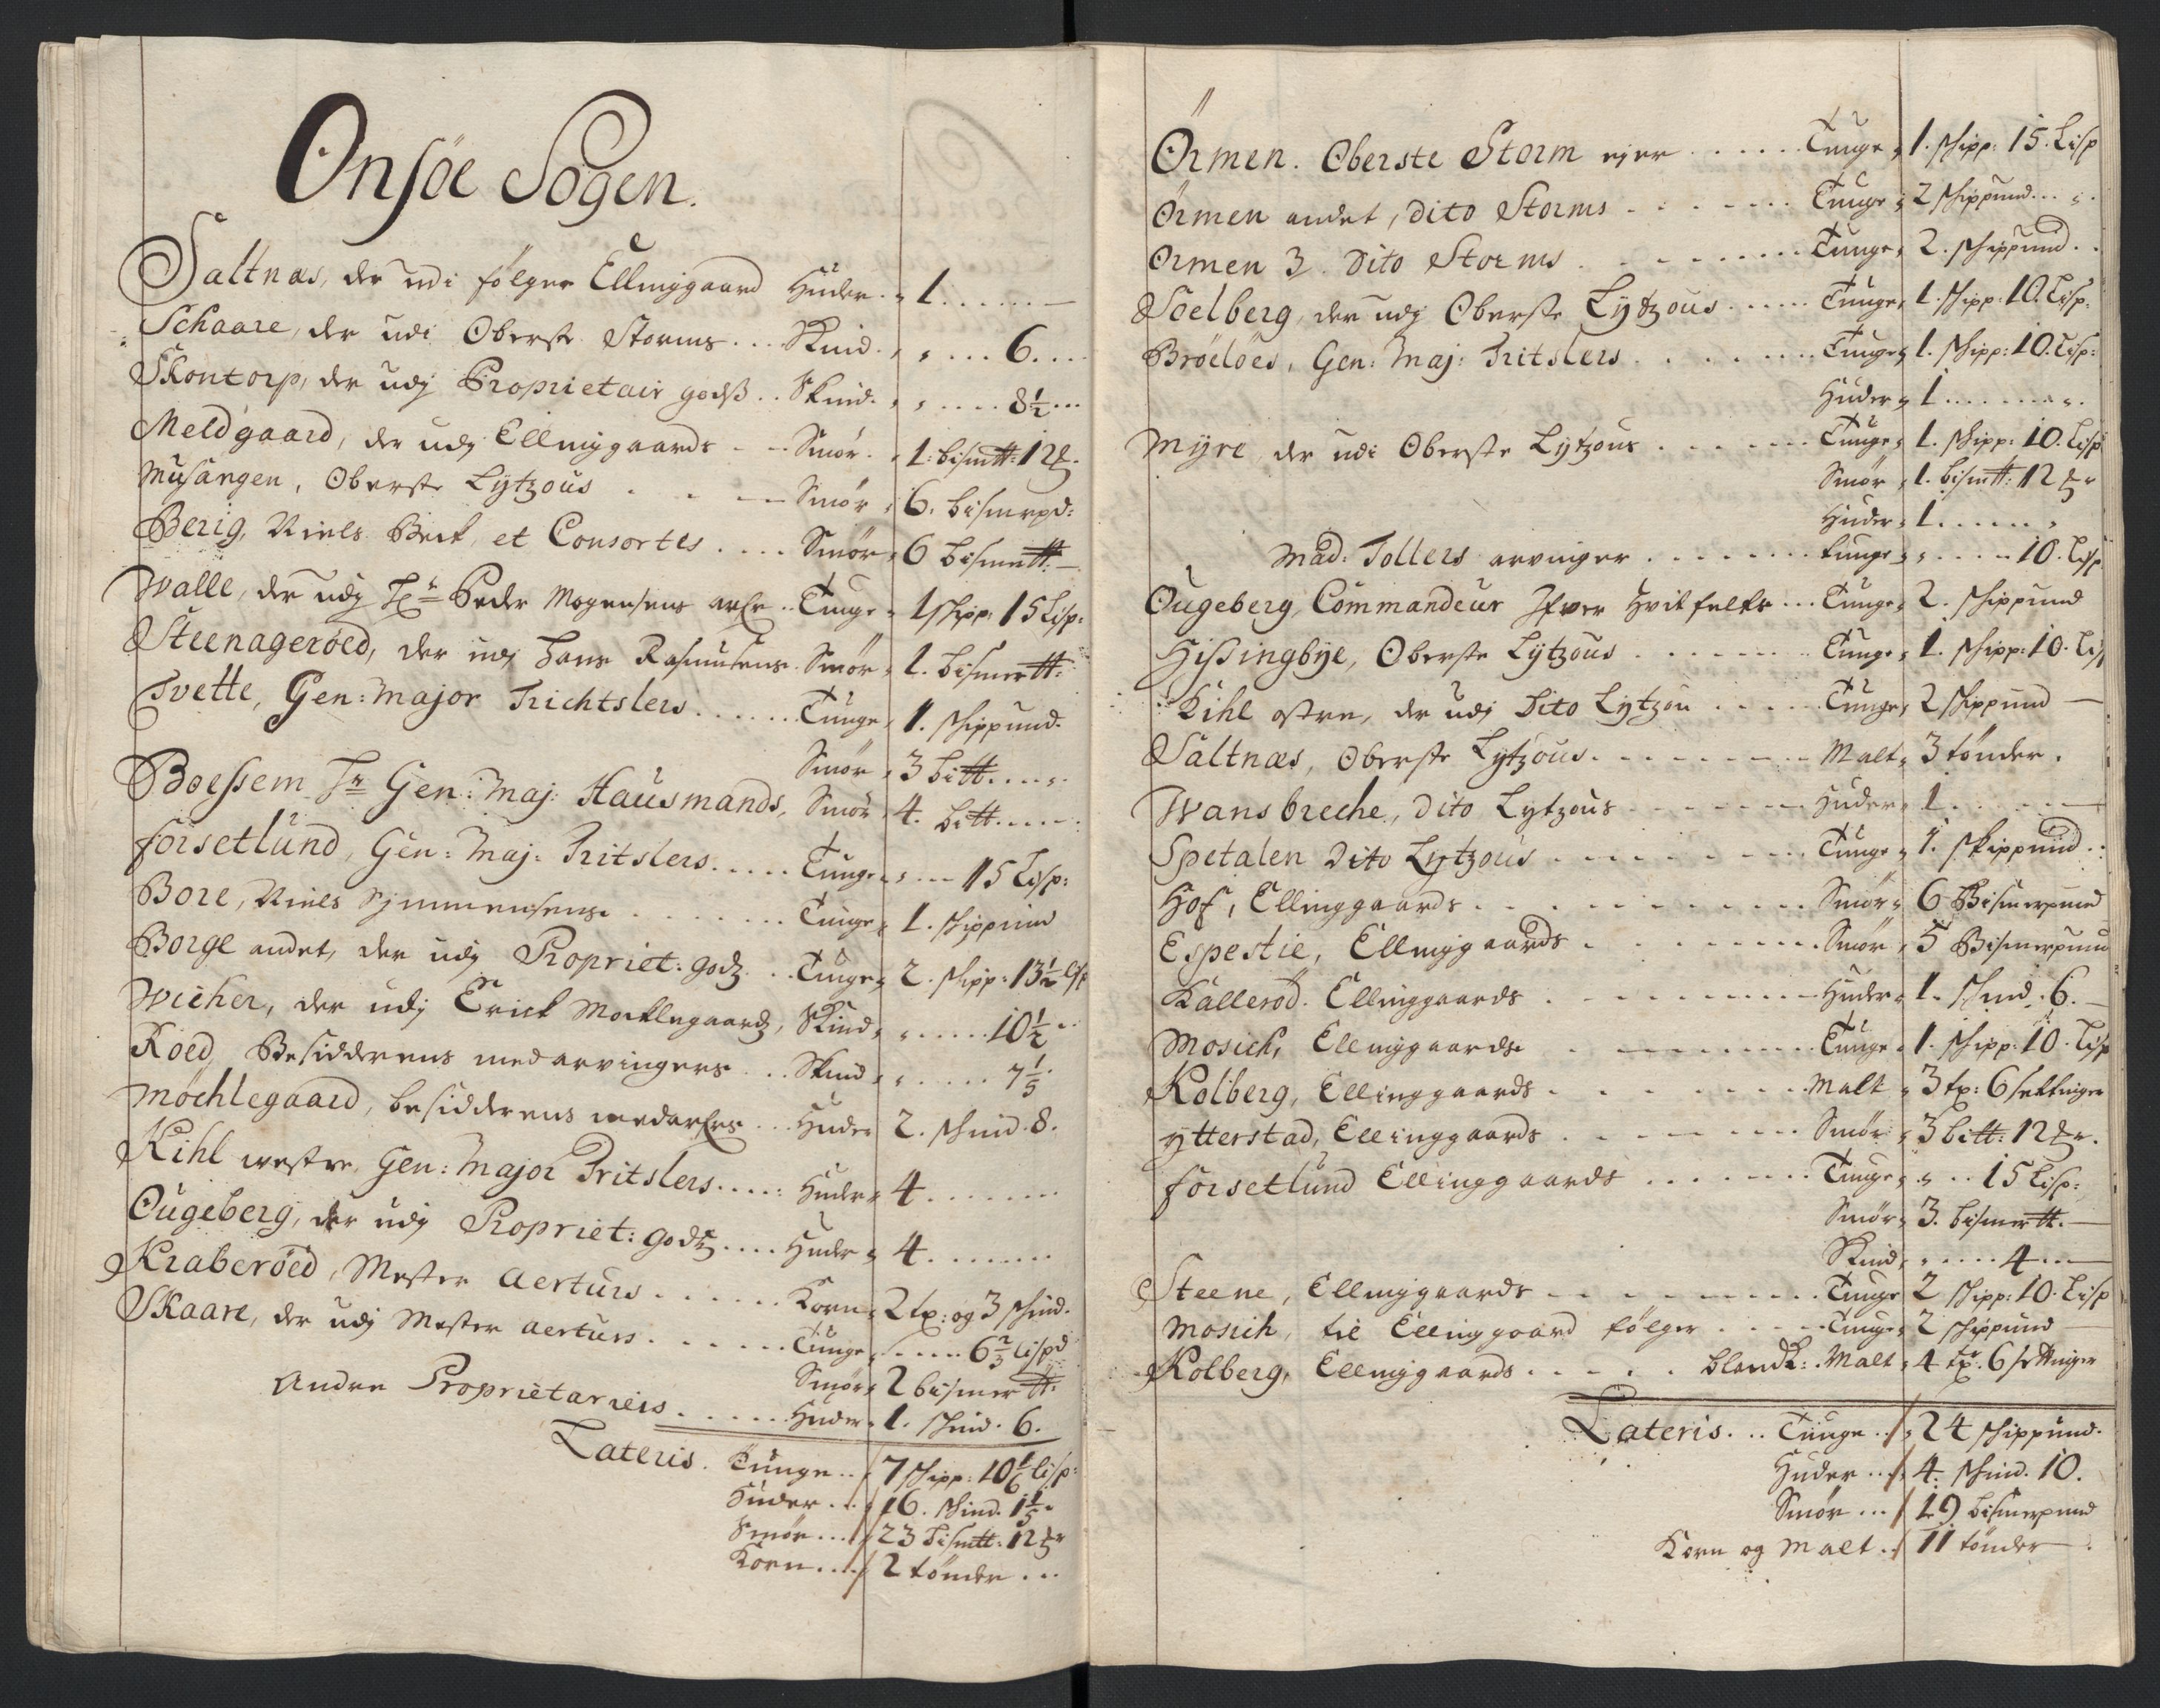 Onsøe Sogen.
Saltnæs, der udi følger Ellinggaard Huder. 1 . . . . . . —
Schaare, der udi Oberste Storms . . . Skind. . . . . 6 . . . .
Skontorp, der udj Proprietair godß . . Skind. . . . . 8½ . . .
Meldgaard, der udj Ellinggaards - - Smør. 1: bismtt: 12 ℔.
Musangen, Oberste Lÿtzous . . — Smør 6. bismrpd:
Berig, Niels Beck, et Consortes . . . . Smør 6 bismertt. —
Walle, der udj Sr Peder Mogensens arfr . . Tunge 1 skip: 15 Lisp:
Steenagerøed, der udj Hans Rasmusens Smør 1. bismertt:
Tvette, Gen: Major Trichtslers . . . . . . Tunge 1. skippund.
Smør 3 bitt. . . . .
Boessem Sr Gen: Maj: Hausmands, Smør 4. bitt. . . . .
forsetlund, Gen: Maj: Tritslers. . . . . Tunge . . . 15 Lisp:
Bore, Niels Sÿmmensens . . . . . . . . Tunge 1. skippund
Borge andet, der udj Propriet: godz. . . Tunge 2. skipp: 13½ lisp
Wicher, der udj Erick Mocklegaards, Skind . . . . . 10½ . .
Roed, Besidderens med arvingers . . . Skind . . . . . 7⅕.
Möchlegaard, besidderens medarfrs . . . Huder 2. skind. 8.
Kihl westre, Gen: Major Tritslers. . . . : Huder 4 . . . . . . . .
Ougeberg, der udj Propriet: godz . . . . Huder 4 . . . . . . . .
Kraberøed, Mester Aerturs . . . . . . Korn 2 tr: og 3 skind.
Skaare, der udj Mester Aerturs . . . . . . Tunge . . . . . 6⅔ lispd
Smør 2 bismertt:
Andre Proprietariers . . . . . Huder 1. skind. 6.
Lateris. Tunge . . 7 skipp: 10⅙ lisp:
Huder . . . 16. skind. 1⅕.
Smør . . . 23 bismtt: 12 ℔
Korn . . . . 2 tønder . . .
Ørmen. Oberste Storm ejer . . . . . . Tunge 1. skipp: 15. Lisp
Ørmen andet, Dito Storms . . . . . . . Tunge 2 skippund . . . .
Ormen 3. Dito Storms . . . . . . . . . Tunge 2. skippund. .
Soelberg, der udj Oberste Lÿtzous . . . . . Tunge 1. skipp: 10. Lisp:
Brøeløes, Gen: Maj: Tritslers . . . . . . . Tunge 1. skipp: 10. Lisp:
Huder 1 . . . . . . . .
Mÿre, der udi Oberste Lÿtzous . . . . . . Tunge 1. skipp: 10. Lisp
Smør 1. bismtt: 12 ℔
Huder 1 . . . . . . .
Mad: Tollers arvinger . . . . . . . tunge . . . . 10. Lisp
Ougeberg, Commandeur Ifver Hvitfelts . . . Tunge 2. skippund
Hissingbÿe, Oberste Lÿtzous . . . . . . Tunge 1. skipp: 10. Lisp
Kihl østre, der udj Dito Lÿtzou . . . . . Tunge 2 skippund —
Saltnæs, Oberste Lÿtzous. . . . . . . . Malt 3 tønder.
Wansbreche, Dito Lÿtzous . . . . . . . Huder 1 . . . . —
Spetalen Dito Lÿtzous . . . . . . . . Tunge 1. skippund. .
Hof, Ellinggaards . . . . . . . . . . . Smør 6 Bismerpund
Espestie, Ellinggaards . . . . . . . . . Smør 5 Bismerpund
Kallerød. Ellinggaards . . . . . . . . . Huder 1. skind. 6. —
Mosich, Ellinggaards . . . . . . . . . Tunge 1. skipp: 10. Lisp
Kolberg, Ellinggaards . . . . . . . . . Malt 3 tr: 6 settinger
ÿtterstad, Ellinggaards . . . . . . . . Smør 3 bitt: 12 ℔.
forsetlund Ellinggaards . . . . . . . . Tunge . . . 15 Lisp:
Smør 3. bismertt. —
Skind . . . . . 4 . . . —
Steene, Ellinggaards . . . . . . . . . Tunge 2 skipp: 10. Lisp
Mosich, til Ellinggaard følger . . . . . Tunge 2 skippund —
Kolberg, Ellinggaards . . . . . blandk: Malt 4 tr. 6 settinger
Lateris. . . Tunge . . 24 skippund.
Huder . . . 4. skind. 10.
Smør . . . 19 bismerpund
Korn og Malt . . 11 tønder — .